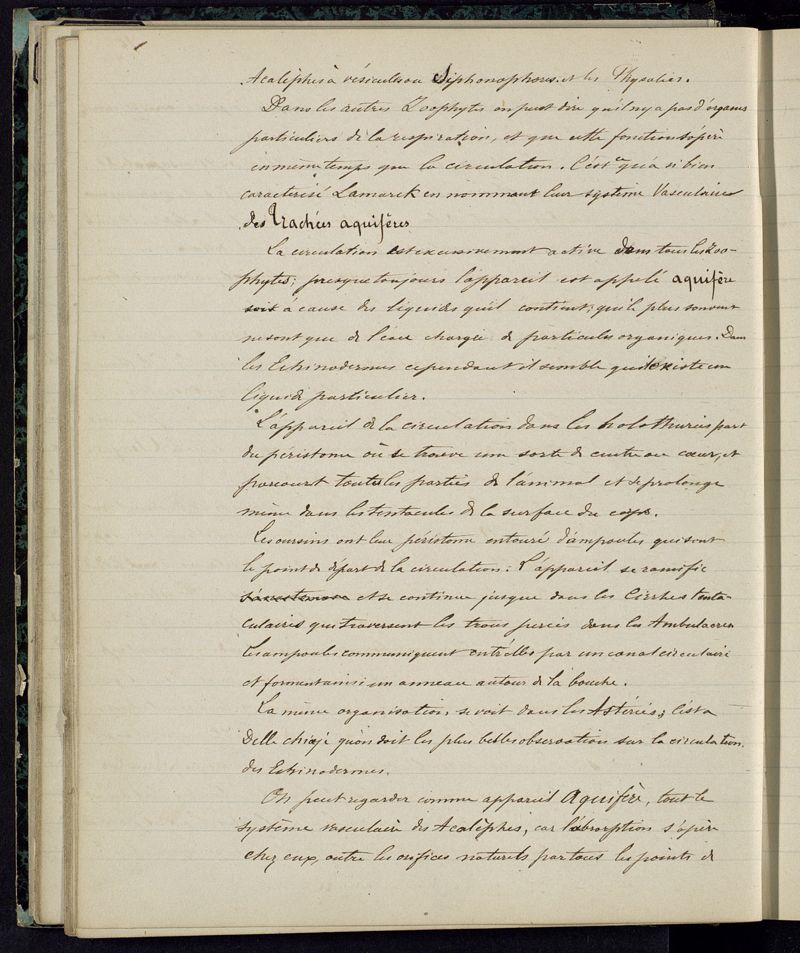 Acalèphes à vésicules ou Siphonophores. et les Physalies.
Dans les autres Zoophytes on peut dire qu'il n'y a pas d'organes
particuliers de la respiration, et que cette fonction s'opère
en même temps que la circulation. C'est ce qu'a si bien
caracterisé Lamarck en nommant leur système Vasculaire
des Trachées aquifères
La circulation est excessivement active dans tous les Zoo-
phytes; presque toujours l'appareil est appelé aquifère
soit à cause des liquides qu'il contient; qui le plus souvent
ne sont que de l'eau chargée de particules organiques. Dans
les Echinodermes cependant il semble qu'il existe un
liquide particulier.
L'appareil de la circulation dans les holothuries part
du péristome où se trouve une sorte de centre ou cœur, et
parcourt toutes les parties de l'animal et se prolonge
même dans les tentacules de la surface du corps.
Les oursins ont leur péristome entouré d'ampoules qui sont
le point de départ de la circulation: L'appareil se ramifie
et se continue jusque dans les Cirrhes tenta-
culaires qui traversent les trous percés dans les Ambulacres
Les ampoules communiquent entr'elles par un canal circulaire
et forment ainsi un anneau autour de la bouche.
La même organisation, se voit dans les Astéries; c'est a
Delle chiaje qu'on doit les plus belles observations sur la circulation.
des Echinodermes.
On peut regarder comme appareil Aquifère, tout le
système vasculaire des Acalèphes, car l'absorption s'opère
chez eux, outre les orifices naturels par tous les points de